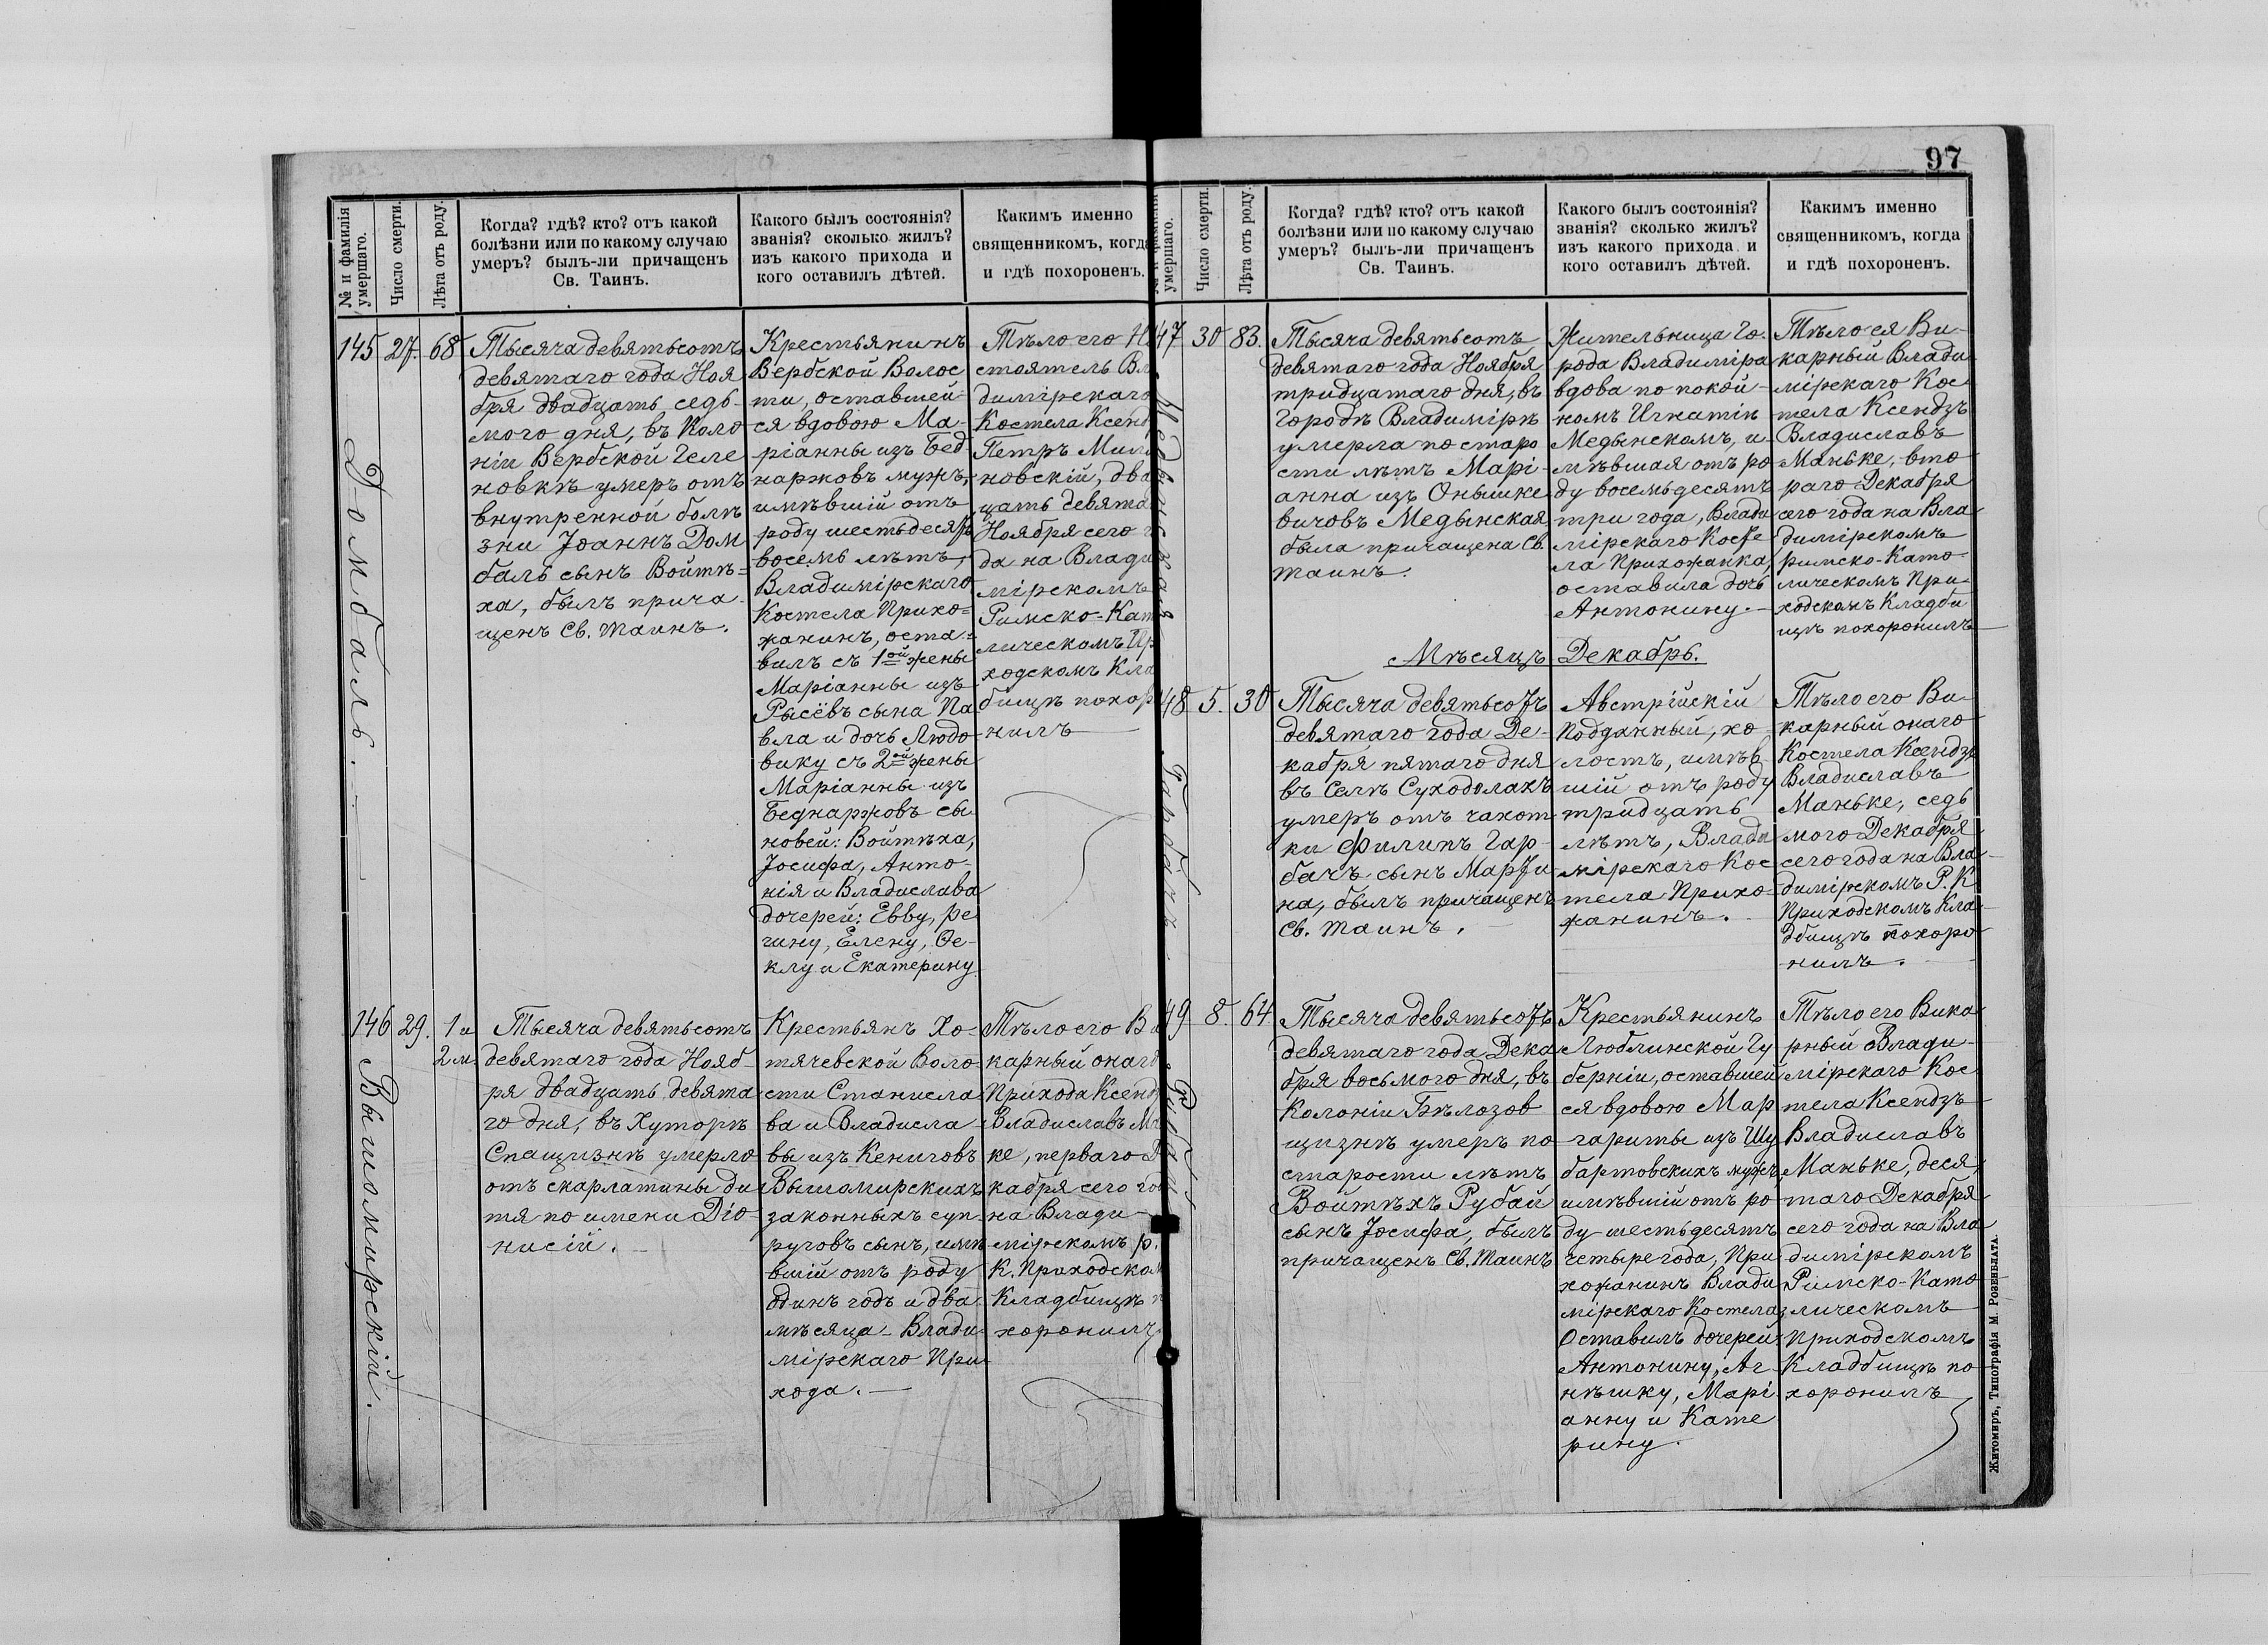 97
№ и фамилія
умершаго.
Число смерти.
Лѣта отъ роду.
Когда? гдѣ? кто? отъ какой
болѣзни или по какому случаю
умеръ? былъ-ли причащенъ
Св. Таинъ.
Какого былъ состоянія?
званія? сколько жилъ?
изъ какого прихода и
кого оставилъ дѣтей.
Какимъ именно
священникомъ, когда
и гдѣ похороненъ.
145
Домбаль.
27.
68
Тысяча девятьсотъ
девятаго года Ноя
бря двадцать седь-
мого дня, въ Коло
ніи Вербской Геле
новкѣ умеръ отъ
внутренной болѣ
зни Іоаннъ Дом
баль сынъ Войтѣ=
ха, былъ прича-
щенъ Св. Таинъ.
Крестьянинъ
Вербской Волос
ти, оставшей-
ся вдовою Ма-
ріанны изъ Бед
наржовъ мужъ,
имѣвшій отъ
роду шестьдесятъ
восемь лѣтъ,
Владимірскаго
Костела Прихо=
жанинъ, оста=
вилъ съ 1ой жены
Маріанны изъ
Рысёвъ сына Па
вла и дочь Людо
вику съ 2ой жены
Маріанны изъ
Беднаржовъ сы
новей: Войтѣха,
Іосифа, Анто-
нія и Владислава
дочерей: Евву, Ре
гину, Елену, Ѳе-
клу и Екатерину.
Тѣло его Н
стоятель Вл
димірскаго
Костела Ксенд
Петръ Мил
новскій, два
цать девята
Ноября сего г
да на Влади
мірскомъ
Римско-Кат
лическомъ Пр
ходскомъ Кла
бищѣ похор
нилъ
146
Вышомирскій.
29.
1 и
2 м.
Тысяча девятьсотъ
девятаго года Нояб-
ря двадцать девята
го дня, въ Хуторѣ
Спащизнѣ умерло
отъ скарлатины ди
тя по имени Діо-
нисій.
Крестьянъ Хо-
тячевской Воло-
сти Станисла
ва и Владисла-
вы изъ Кениговъ
Вышомирскихъ
законныхъ суп-
руговъ сынъ, имѣ
вшій отъ роду
одинъ годъ и два
мѣсяца - Влади
мірскаго При-
хода.
Тѣло его Ви
карный онаго
Прихода Ксенд
Владиславъ Ма
ке, перваго Д
кабря сего год
на Влади
мірскомъ Р.
К. Приходском
Кладбищѣ п
хоронилъ
№ и фамилія
умершаго.
Число смерти.
Лѣта отъ роду.
Когда? гдѣ? кто? отъ какой
болѣзни или по какому случаю
умеръ? былъ-ли причащенъ
Св. Таинъ.
Какого былъ состоянія?
званія? сколько жилъ?
изъ какого прихода и
кого оставилъ дѣтей.
Какимъ именно
священникомъ, когда
и гдѣ похороненъ.
47
Медынская
30
83.
Тысяча девятьсотъ
девятаго года Ноября
тридцатаго дня, въ
Городѣ Владимірѣ
умерла по старо
сти лѣтъ Марі-
анна изъ Онышке
вичовъ Медынская
была причащена Св.
Таинъ.
Жительница Го-
рода Владиміра
вдова по покой-
номъ Игнатіѣ
Медынскомъ, и-
мѣвшая отъ ро
ду восемьдесятъ
три года, Влади
мірскаго Косте
ла Прихожанка,
оставила дочь
Антонину.
Тѣло ея Ви-
карный Влади
мірскаго Кос
тела Ксендзъ
Владиславъ
Маньке, вто
раго Декабря
сего года на Вла
димірскомъ
римско-Като-
лическомъ При-
ходскомъ Кладби
щѣ похоронилъ
Мѣсяцъ Декабрь.
48
Гарбачъ
5.
30
Тысяча девятьсотъ
девятаго года Де-
кабря пятаго дня
въ Селѣ Суходолахъ
умеръ отъ чахот
ки Филипъ Гар-
бачъ сынъ Марти
на, былъ причащенъ
Св. Таинъ.
Австрійскій
Подданный, хо
лостъ, имѣв-
шій отъ роду
тридцать
лѣтъ, Влади
мірскаго Кос
тела Прихо-
жанинъ.
Тѣло его Ви-
карный онаго
Костела Ксендзъ
Владиславъ
Маньке, седь
мого Декабря
сего года на Вла-
димірскомъ Р. К.
Приходскомъ Кла-
дбищѣ похоро
нилъ.
49
Рубай
8.
64
Тысяча девятьсотъ
девятаго года Дека
бря восьмого дня, въ
Колоніи Бѣлозов
щизнѣ умеръ по
старости лѣтъ
Войтѣхъ Рубай
сынъ Іосифа, былъ
причащенъ Св. Таинъ
Крестьянинъ
Люблинской Гу
берніи, оставшей
ся вдовою Мар
гариты изъ Шу
бартовскихъ мужъ,
имѣвшій отъ ро
ду шестьдесятъ
четыре года, При
хожанинъ Влади
мірскаго Костела,
Оставилъ дочерей:
Антонину, Аг-
нѣшку, Марі
анну и Кате
рину.
Тѣло его Вика
рный Влади-
мірскаго Кос
тела Ксендзъ
Владиславъ
Маньке, деся
таго Декабря
сего года на Вла
димірскомъ
Римско-Като
лическомъ
Приходскомъ
Кладбищѣ по
хоронилъ
Житомиръ, Типографія М. Розенблата.